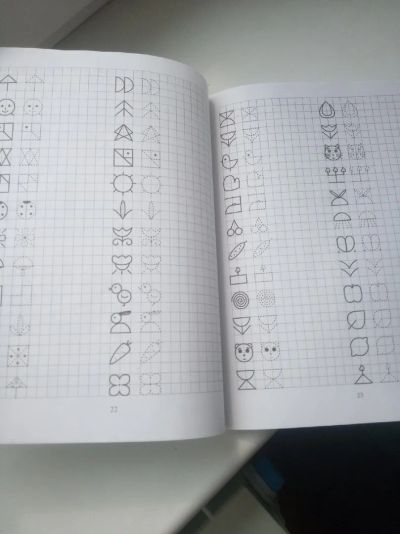 22
23